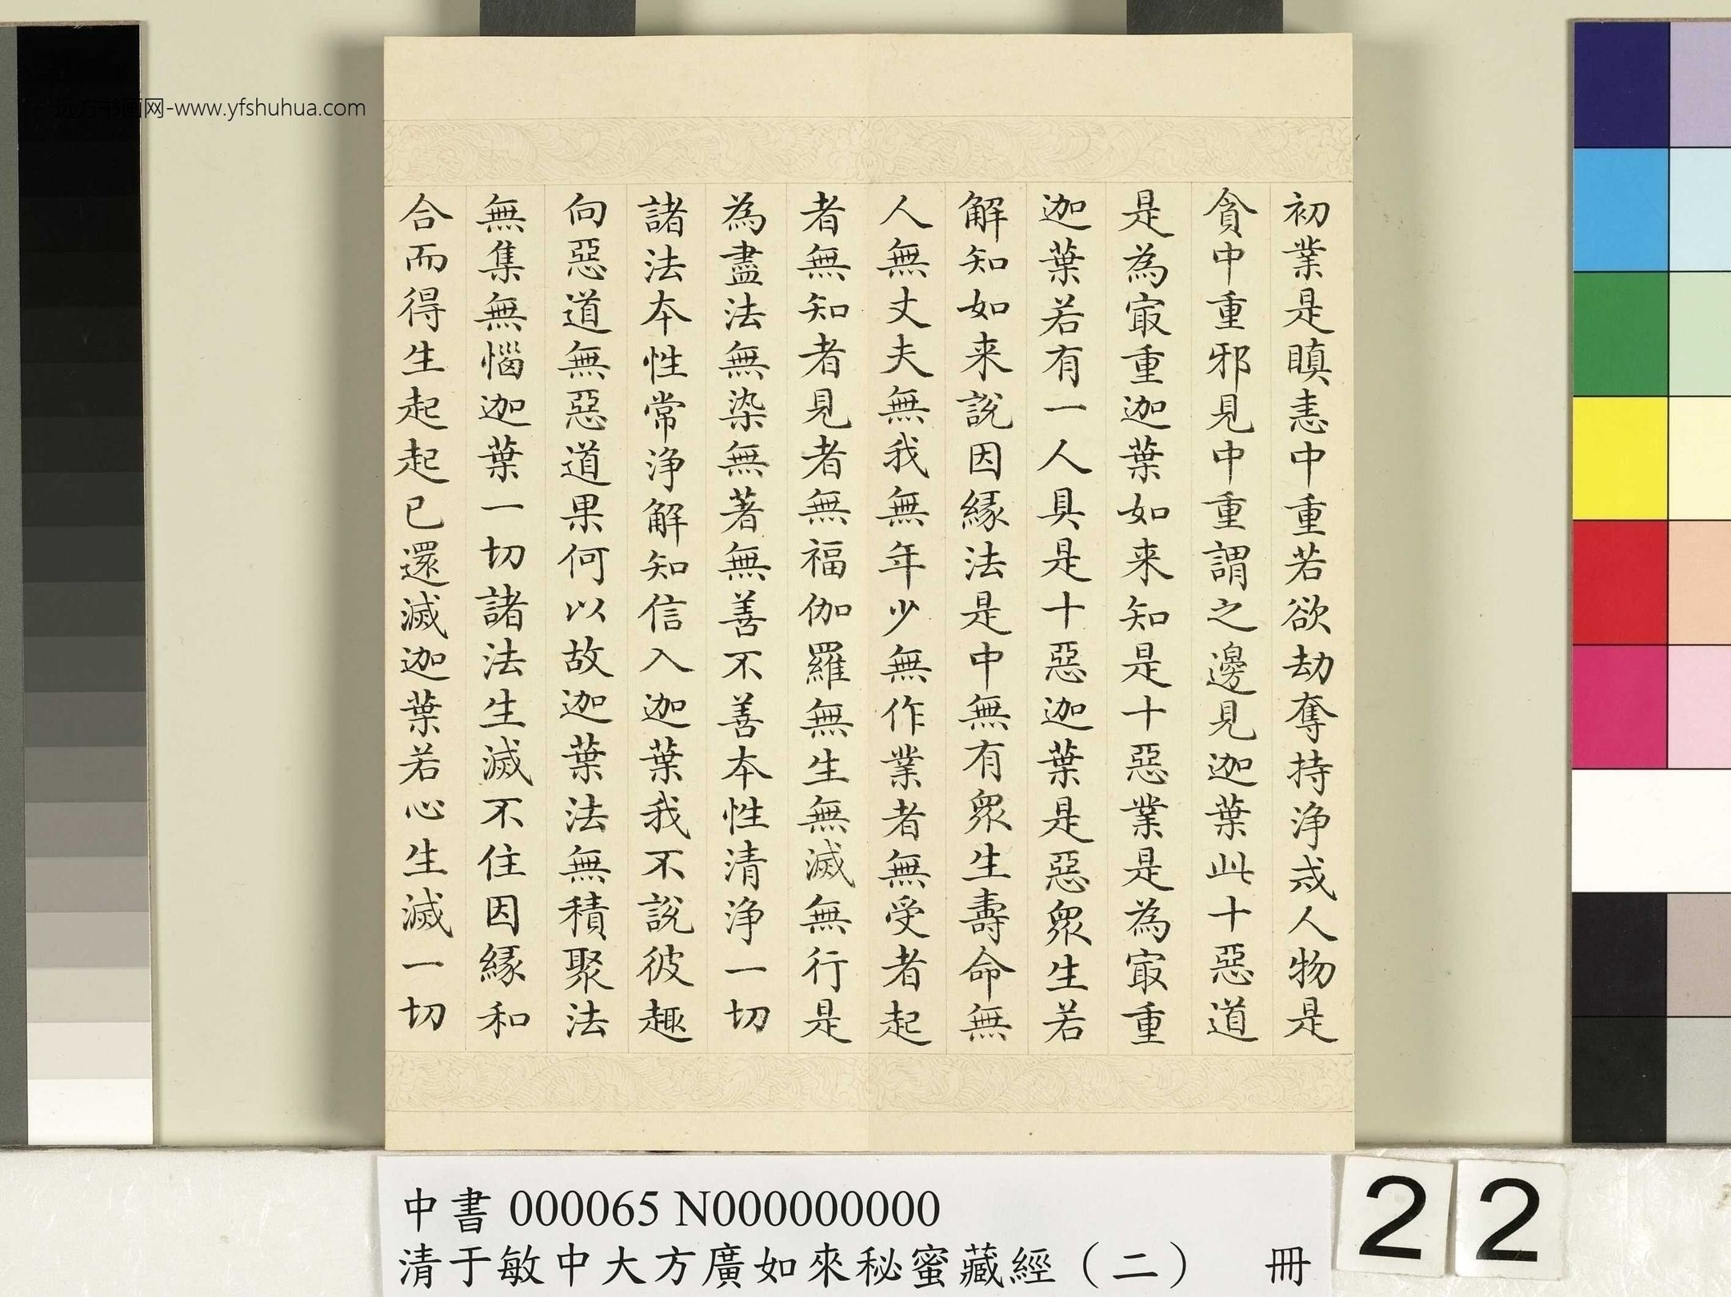 初業是瞋恚中重若欲劫奪持淨戒人物是
貪中重邪見中重謂之邊見迦葉此十惡道
是為冣重迦葉如来知是十惡業是為冣重
迦葉若有一人具是十惡迦葉是惡眾生若
解知如来說因緣法是中無有眾生壽命無
人無丈夫無我無年少無作業者無受者起
者無知者見者無福伽羅無生無滅無行是
為盡法無染無著無善不善本性清淨一切
諸法本性常淨解知信入迦葉我不說彼趣
向惡道無惡道果何以故迦葉法無積聚法
無集無惱迦葉一切諸法生滅不住因緣和
合而得生起起已還滅迦葉若心生滅一切
远方书画网-www.yfshuhua.com
中書 000065 N000000000
清于敏中大方廣如來秘蜜藏經（二） 冊
22